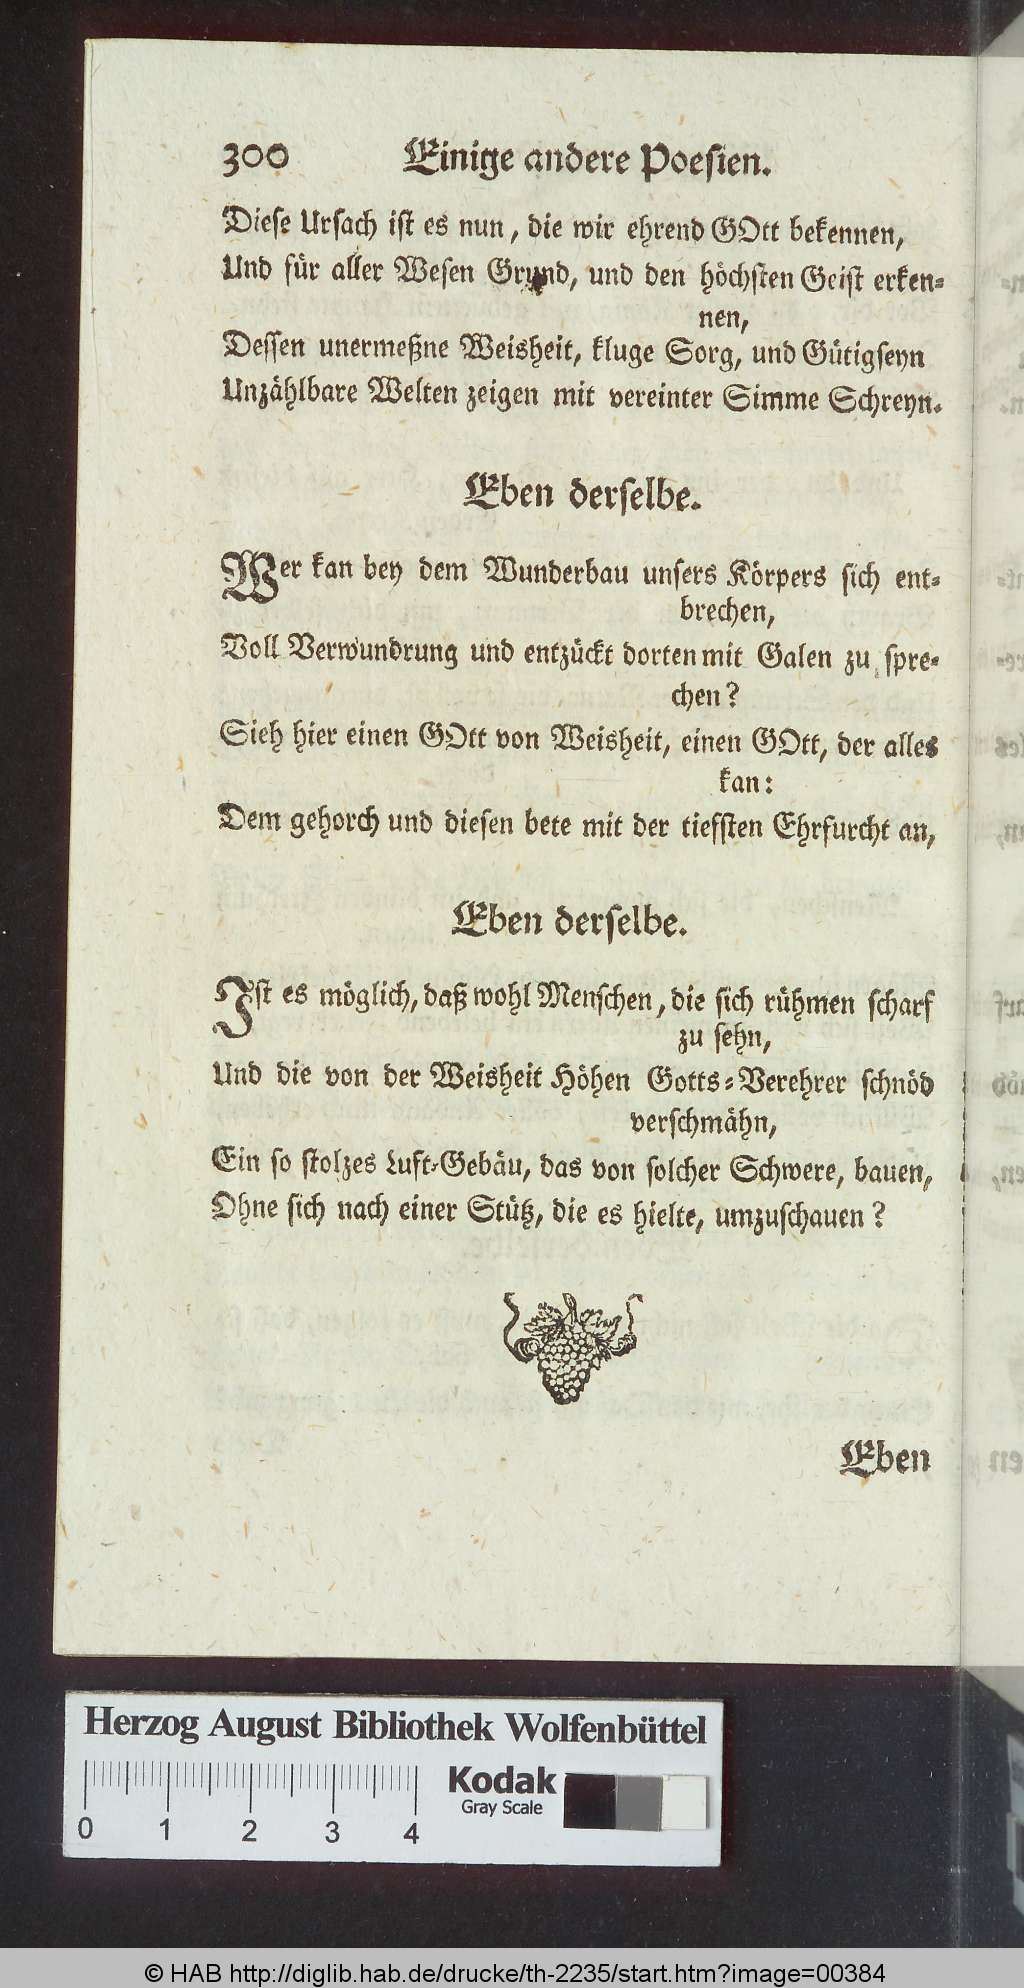 300 Einige andere Poesien.
Diese Ursach ist es nun, die wir ehrend GOtt bekennen,
Und für aller Wesen Grund, und den höchsten Geist erken-
nen,
Dessen unermeßne Weisheit, kluge Sorg, und Gütigseyn
Unzählbare Welten zeigen mit vereinter Simme Schreyn.
Eben derselbe.
Wer kan bey dem Wunderbau unsers Körpers sich ent-
brechen,
Voll Verwundrung und entzückt dorten mit Galen zu spre-
chen?
Sieh hier einen GOtt von Weisheit, einen GOtt, der alles
kan:
Dem gehorch und diesen bete mit der tiefsten Ehrfurcht an,
Eben derselbe.
Ist es möglich, daß wohl Menschen, die sich rühmen scharf
zu sehn,
Und die von der Weisheit Höhen Gotts-Verehrer schnöd
verschmähn,
Ein so stolzes Luft-Gebäu, das von solcher Schwere, bauen,
Ohne sich nach einer Stütz, die es hielte, umzuschauen?
Eben
Herzog August Bibliothek Wolfenbüttel
Kodak
Gray Scale
0 1 2 3 4
© HAB http://diglib.hab.de/drucke/th-2235/start.htm?image=00384